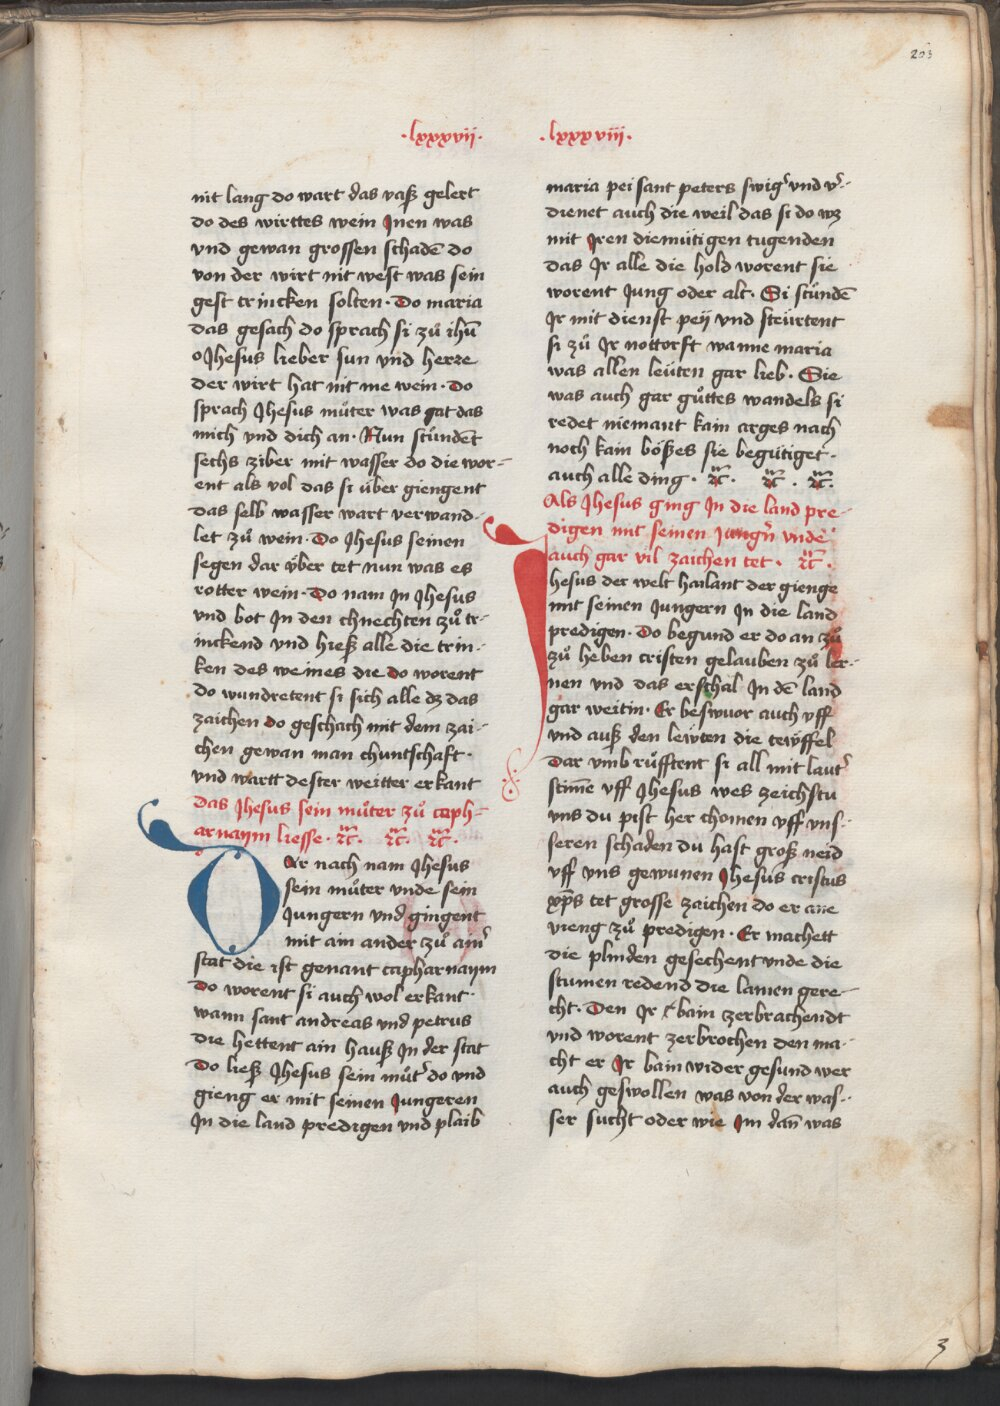 203
·lxxxvii·
nit lang do wart das vaß gelert
do des wirttes wein Jnen was
vnd gewan grossen schadē do
von der wirt nit west was sein
gest trincken solten· Do maria
das gesach do sprach si zuͦ ihū
o Jhesus lieber sun vnd herre
der wirt hat nit me wein· Do
sprach Jhesus muͦter was gat das
mich vnd dich an· Nun stuͦndēt
sechs ziber mit wasser do die wor-
ent als vol das si über giengent
das selb wasser wart verwand-
let zuͦ wein· Do Jhesus seinen
segen dar ÿber tet nun was es
rotter wein· Do nam Jn Jhesus
vnd bot Jn den chnechten zuͦ tr-
inckend vnd hieß alle die trin-
ken des weines die do worent
do wundretent si sich alle dz das
zaichen do geschach mit dem zai-
chen gewan man chuntschaft·
vnd wartt dester weitter erkant
das Jhesus sein muͦter zuͦ caph-
arnaym liesse· ꝛc̄· ꝛc̄· ꝛc̄·
Dar nach nam Jhesus
sein muͦter vnde sein
Jungern vnd gingent
mit ain ander zuͦ ain᷑
stat die ist genant capharnaym
Do worent si auch wol erkant·
wann sant andreas vnd petrus
die hettent ain hauß Jn der stat
Do ließ Jhesus sein muͦt᷑ do vnd
gieng er mit seinen Jungeren
Jn die land predigen vnd plaib
·lxxxviii·
maria pei sant peters swig᷑ vnd v᷑-
dienet auch die weil das si do wz
mit Jren diemütigen tugenden
das Jr alle die hold worent sie
worent Jung oder alt· Si stuͦndē
Jr mit dienst peÿ vnd steürtent
si zuͦ Jr nottorft wanne maria
was allen leüten gar lieb· Sie
was auch gar guͦttes wandels si
redet niemant kain arges nach
noch kain bößes sie begütiget·
auch alle ding· ꝛc̄· ꝛc̄· ꝛc̄·
Als Jhesus ging Jn die land pre-
digen mit seinen Jungn᷑ vnde
auch gar vil zaichen tet· ꝛc̄·
Jhesus der welt hailant der gienge
mit seinen Jungern Jn die land
predigen· Do begund er do an zuͦ
zuͦ heben cristen gelauben zuͦ ler-
nen vnd das erschal Jn dē land
gar weitin· Er beswuor auch vff
vnd auß den leẅten die teẅffel
Dar vmb ruͦfftent si all mit laut᷑
stim̄e vff Jhesus wes zeichstu
vns du pist her chomen vff vns-
seren schaden du hast groß neid
vff vns gewunen Jhesus cristus
xp̄s tet grosse zaichen do er ane
vieng zuͦ predigen· Er machett
die plinden gesechent vnde die
stumen redend die lamen gere-
cht· Den Jr bain zerbrachendt
vnd worent zerbrochen den ma-
cht er Jr bain wider gesund wer
auch geswollen was von der was-
ser sucht oder wie Jm dan̄ was
3